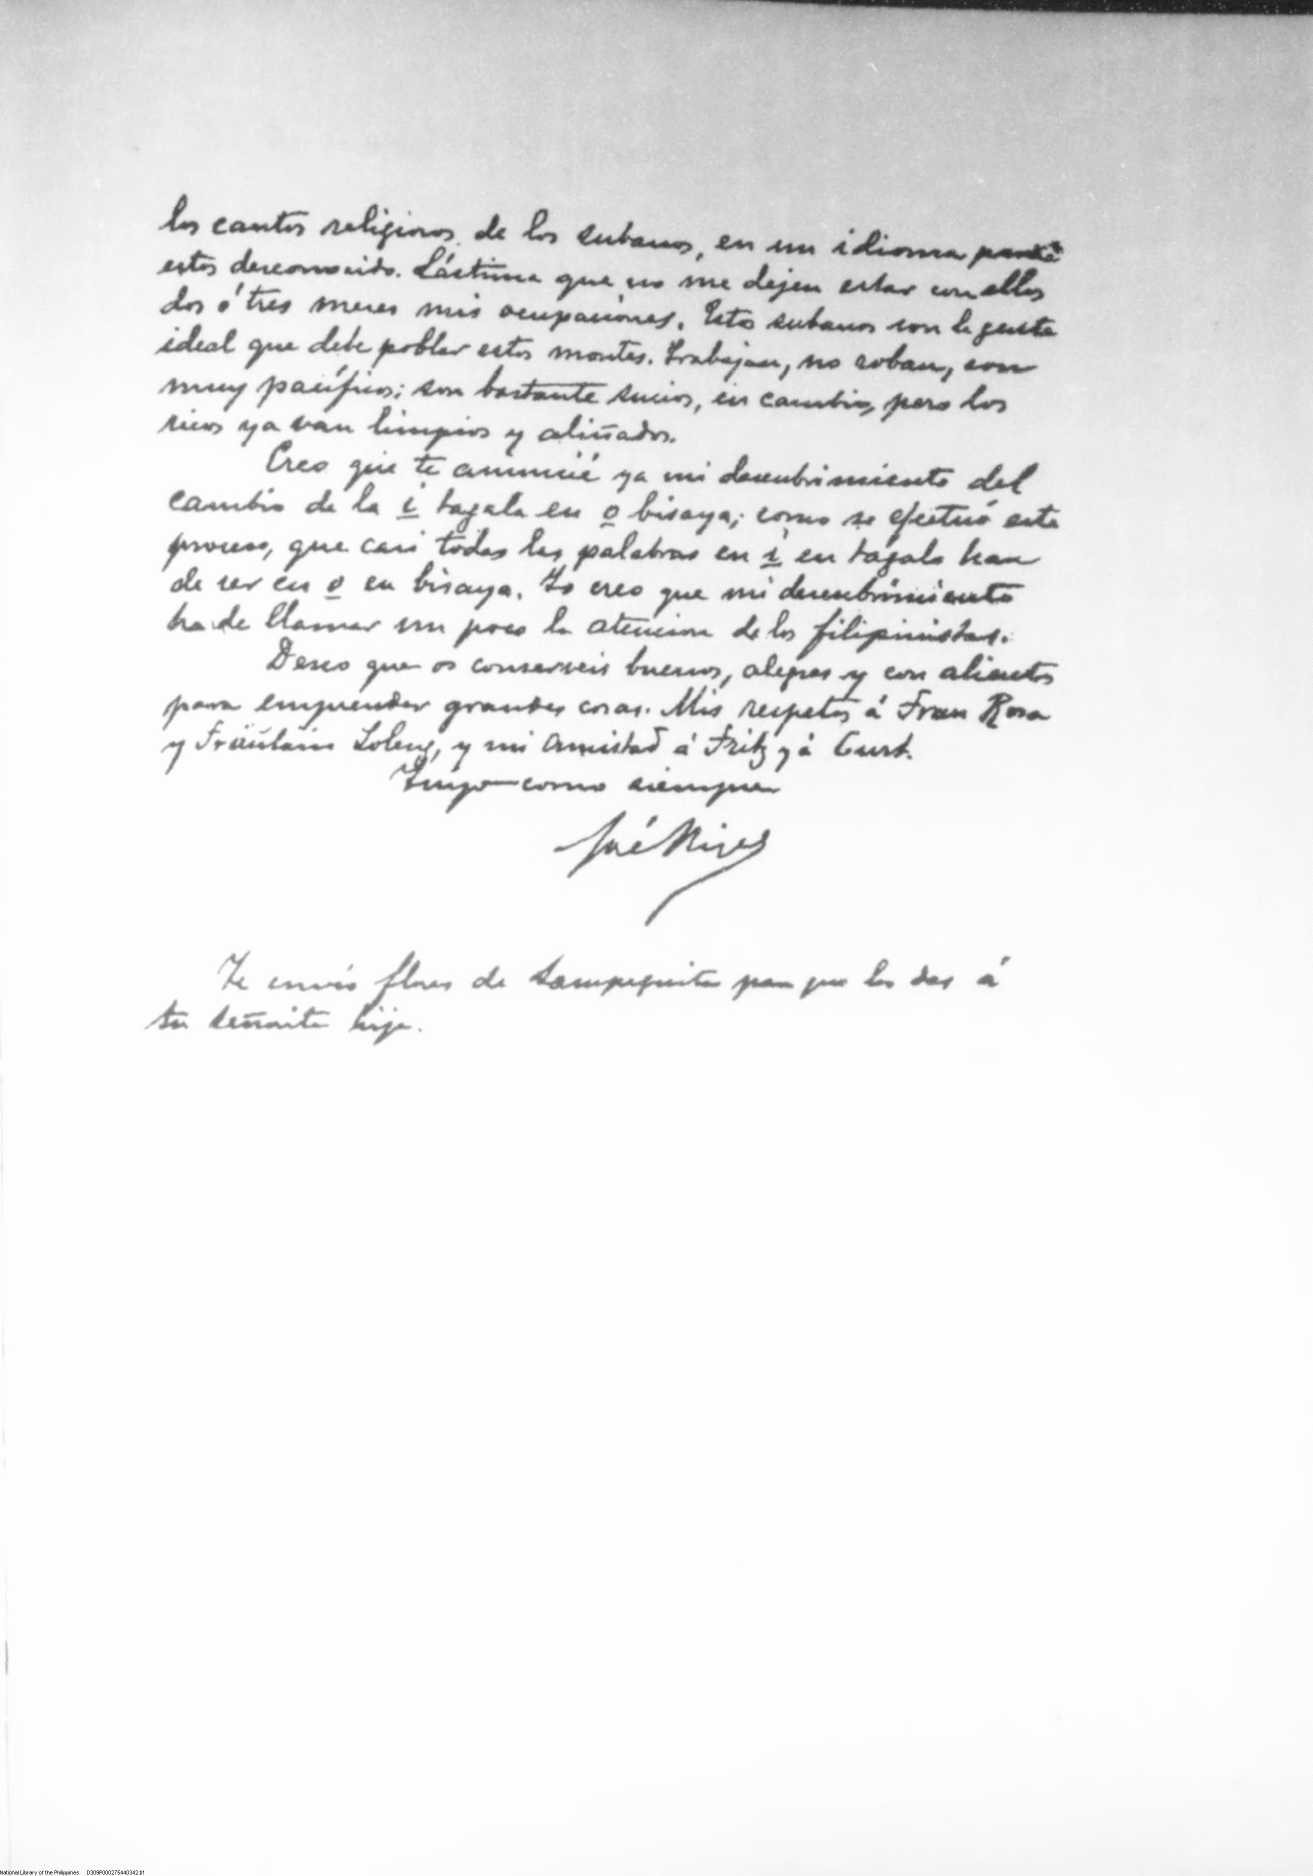 los cantos religiosos de los subanos, en un idioma para
estos desconocido. Lástima que no me dejen estar con ellos
dos ó tres meses mis ocupaciones. Estos subanos son la gente
ideal que debe poblar estos montes. Trabajan, no roban, son
muy pacíficos; son bastante sucios, en cambio, pero los
ricos ya van limpios y aliñados.
Creo que te anuncié ya mi descubrimiento del
cambio de la i tagala en o bisaya; como se efectuó este
proceso, que casi todas las palabras en i en tágalo han
de ser en o en bisaya. Yo creo que mi descubrimiento
ha de llamar un poco la atencion de los filipinistas.
Deseo que os conserveis buenos, alegres y con alientos
para emprender grandes cosas. Mis respetos á Frau Rosa
y Fräulein Loleng, y mi amistad á Fritz y á Curt.
Tuyo como siempre
José Rizal
Te envio flores de sampaguita para que las des á
tu señorita hija.
National Library of the Philippines D309P000275440342.tif